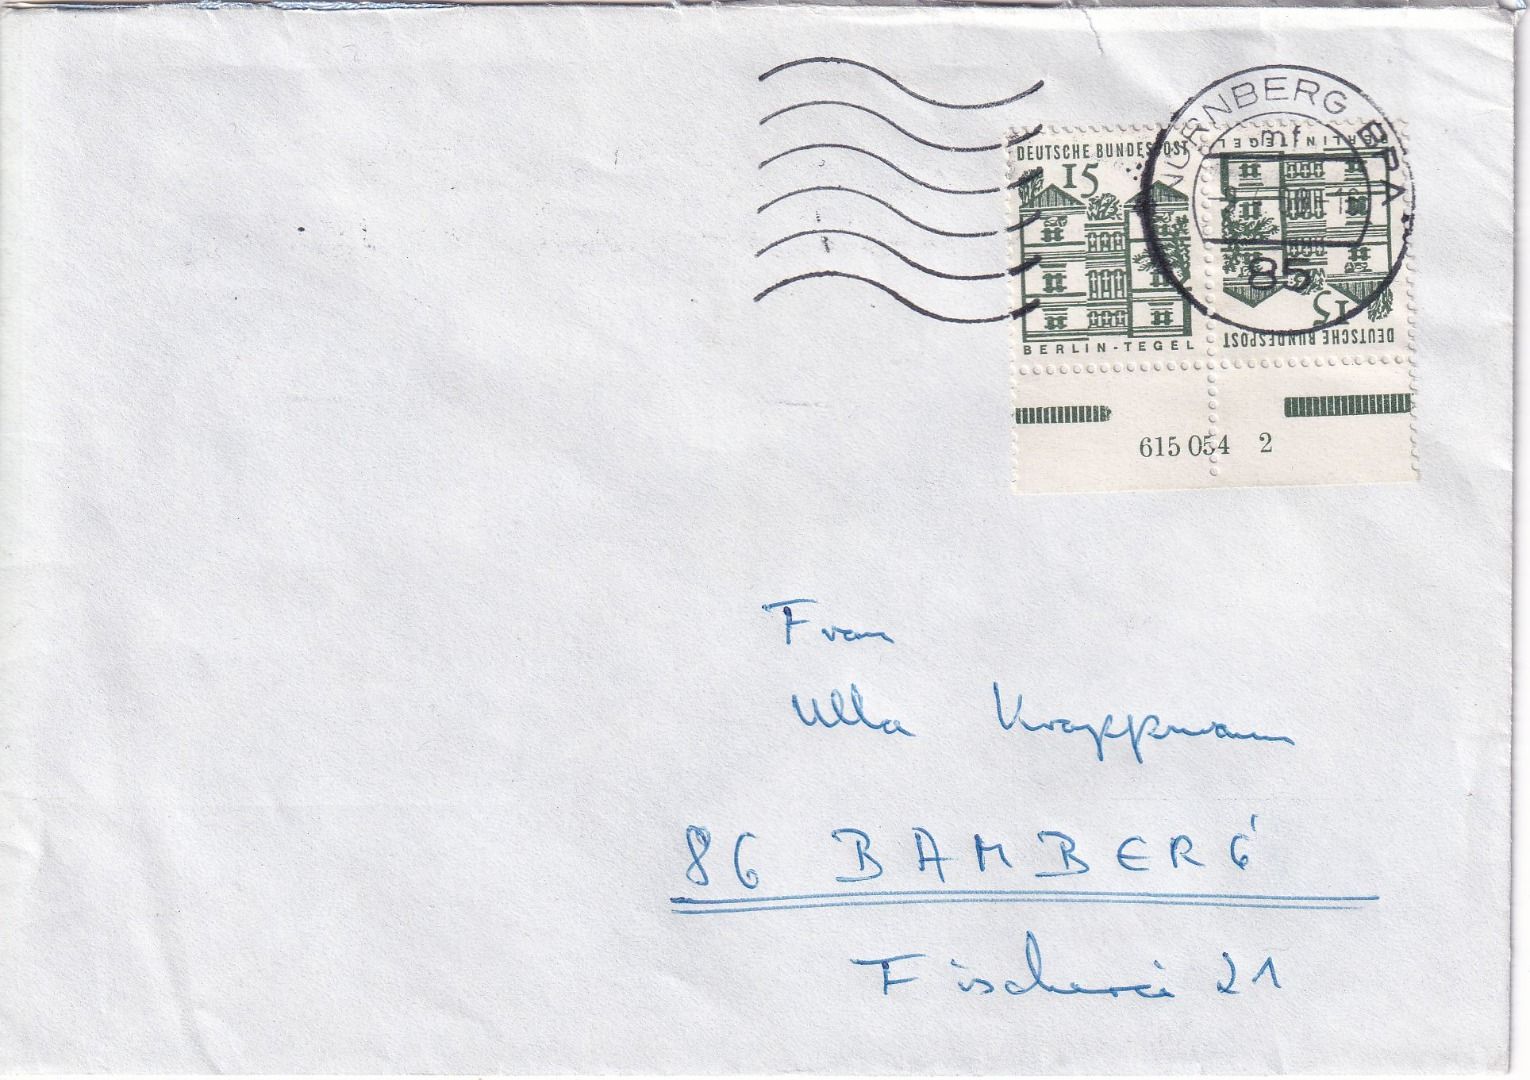 DEUTSCHE BUNDESPOST
15
BERLIN-TEGEL
BERLIN TEGEL
15
DEUTSCHE BUNDESPOST
NÜRNBERG BPA
mf
85
615 054 2
Frau
Ulla Krappmann
86 BAMBERG
Fischerei 21